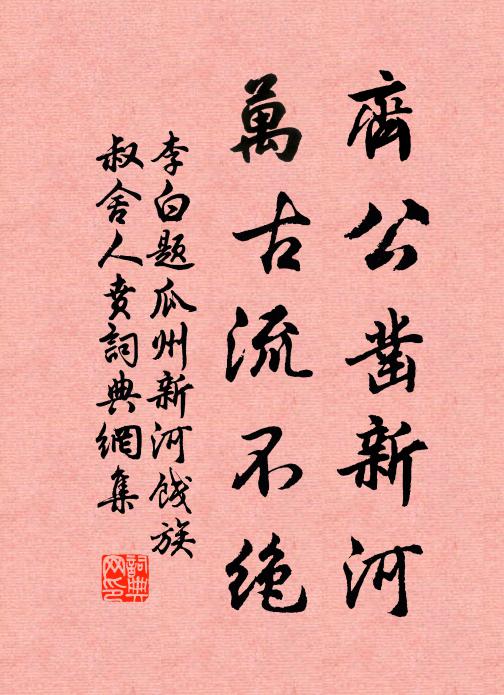 齊公鑿新河
萬古流不絕
李白題瓜州新河餞族
叔舍人賁詞典網集
詞典网印